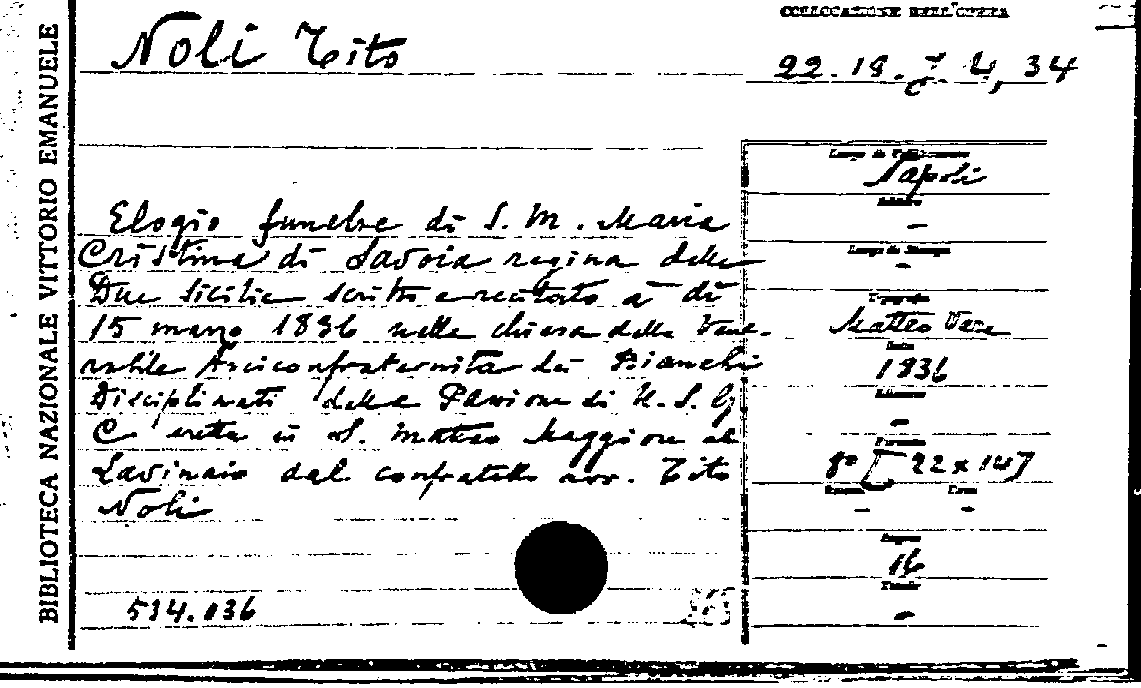 BIBLIOTECA NAZIONALE VITTORIO EMANUELE
COLLOCAZIONE DELL'OPERA
Noli Tito
22. 18. 4, 34
Elogio funebre di S. M. Maria
Cristina di Savoia regina delle
Due Sicilie scritto e recitato a dì
15 marzo 1836 nella chiesa della Vene-
rabile Arciconfraternita dei Bianchi
Disciplinati della Passione di N. S. G.
C. eretta in S. Matteo Maggiore al
Lavinaio dal confratello avv. Tito
Noli
534.036
Luogo di Pubblicazione
Napoli
Editore
-
Luogo di Stampa
-
Tipografo
Matteo Vara
Data
1836
Edizione
-
Formato
8º [22x147
-
-
Pagine
16
-